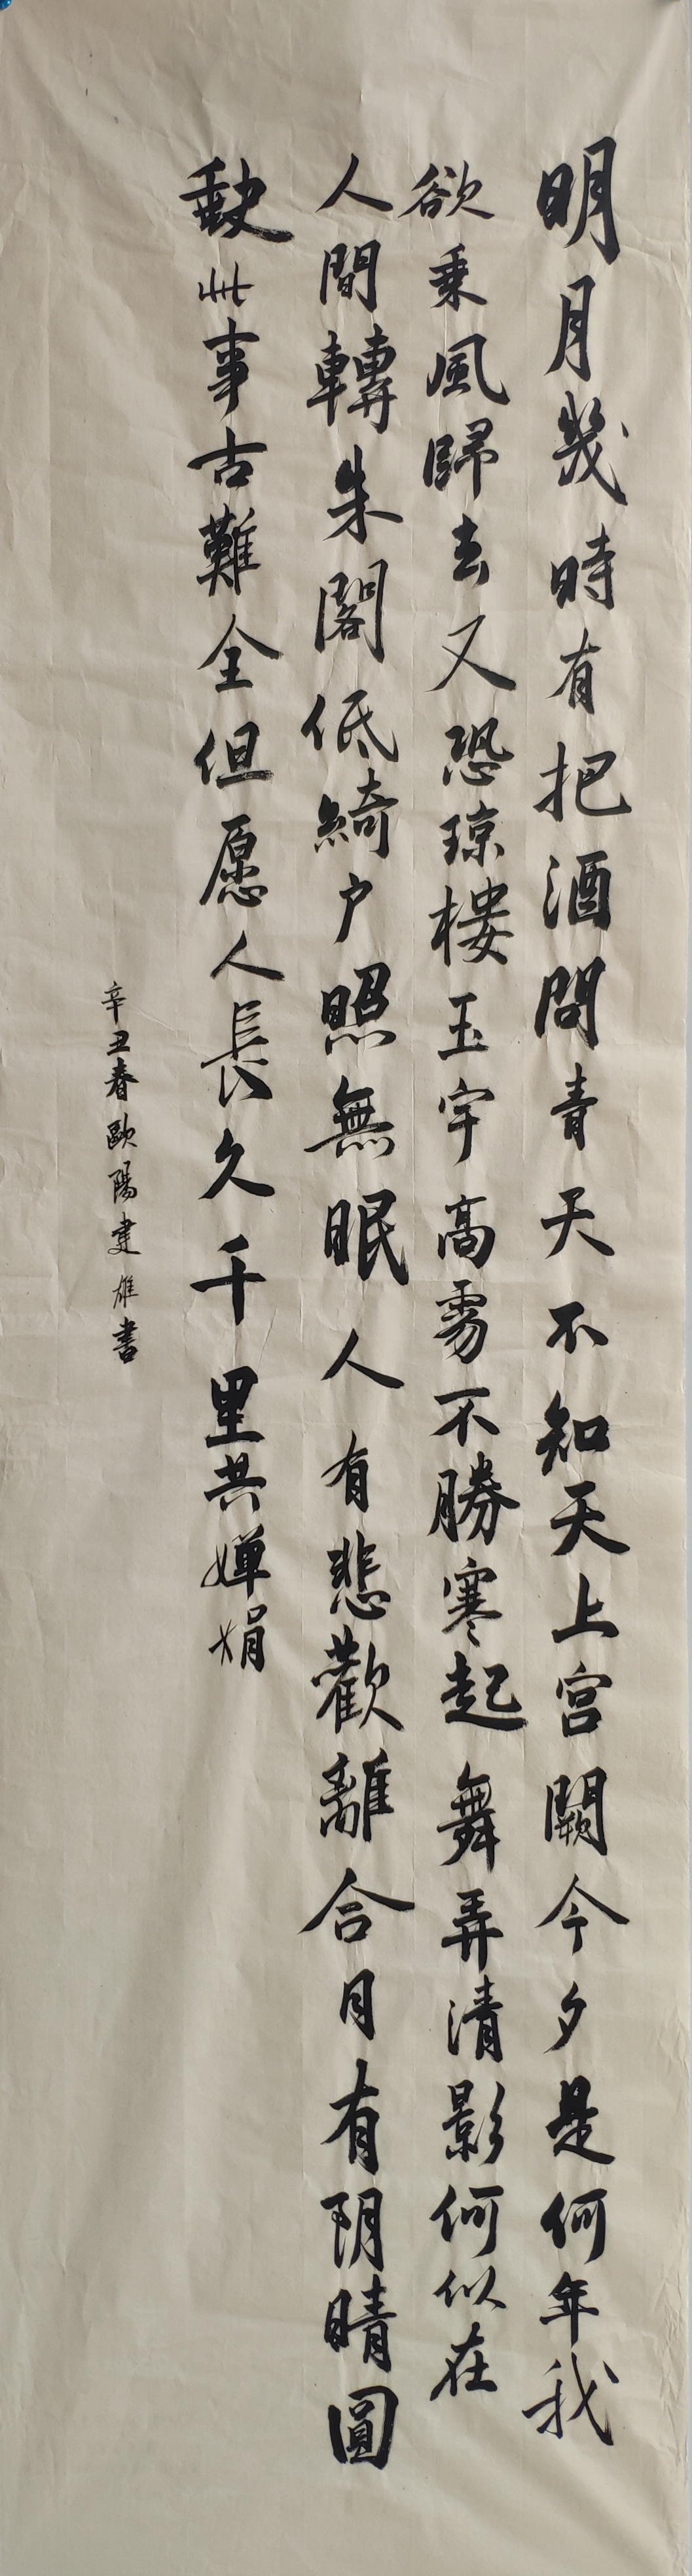 明月幾時有把酒問青天不知天上宫闕今夕是何年我
欲乘風歸去又恐琼樓玉宇高處不勝寒起舞弄清影何似在
人間轉朱閣低綺户照無眠人有悲歡離合月有阴晴圓
缺此事古難全但愿人長久千里共嬋娟
辛丑春歐陽建雄書